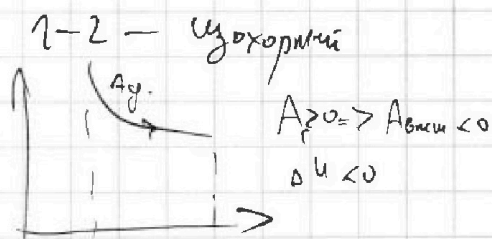 1-2 — изохорный
Ад.
Aг>0=> Aвнеш <0
ΔU <0